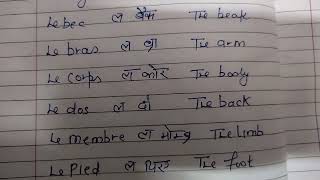 Le bec ल बैक The beak
Le bras ल ब्रा The arm
Le corps ल कोर The body
Le dos ल दो The back
Le membre ल मोम्ब्र The limb
Le Pied ल The foot